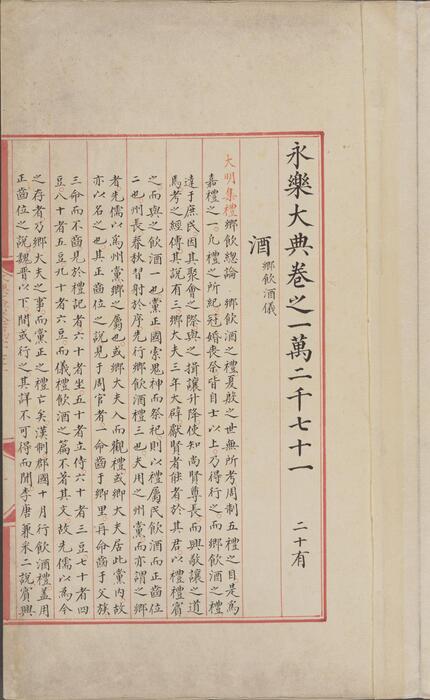 永樂大典卷之一萬二千七十一 二十有
酒 鄉飲酒儀
大明集禮鄉飲總論 鄉飲酒之禮夏殷之世無所考周制五禮之目是為
嘉禮之一凡禮之所紀冠婚喪祭皆自士以上乃得行之而鄉飲酒之禮
達于庶民因其聚會之際與之揖讓升降使知尚賢尊長而興敬讓之道
焉考之經傳其說有三鄉大夫三年大辟獻賢者能者於其君以禮禮賓
之而與之飲酒一也黨正國索鬼神而祭祀則以禮屬民飲酒而正齒位
二也州長春秋習射於序先行鄉飲酒禮三也夫用之州黨而亦謂之鄉
者先儒以為州黨鄉之屬也或鄉大夫入而觀禮或鄉大夫居此黨內故
亦以名之也其正齒位之說見于周官者一命齒于鄉里再命齒于父族
三命而不齒見於禮記者六十者坐五十者立侍六十者三豆七十者四
豆八十者五豆九十者六豆而儀禮飲酒之篇不著其文故先儒以為今
之存者乃鄉大夫之事而黨正之禮亡矣漢制郡國十月行飲酒禮蓋用
正齒位之說魏晉以下間或行之其詳不可得而聞李唐兼采二說賓興